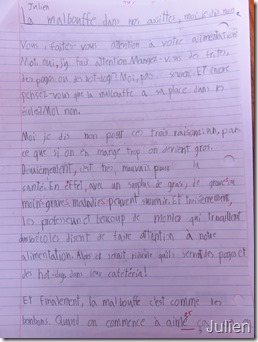 Julien
La malbouffe dans nos assiettes, moi, je dis non.
Vous, faites-vous attention à votre alimentation?
Moi oui, j'y fait attention. Mangez-vous des frites,
des pogos ou des hot-dogs? Moi, pas souvent. Et encore
pensez-vous que la malbouffe a sa place dans nos
Moi non.
Moi je dis non pour ces trois raisons: un, par
ce que si on en mange trop on devient gros.
Deuxièmement, c'est très mauvais pour la
santé. En effet, avec un surplus de gras, de
moins graves maladies peuvent survenir. Et troisièmement,
les professeurs et beaucoup de monde qui travaillent
disent de faire attention à notre
alimentation. Alors ce serait ridicule qu'ils servent des pogos et
des hot-dogs dans leur cafétéria!
Et finalement, la malbouffe c'est comme les
bonbons. Quand on commence à aimer ça
Julien